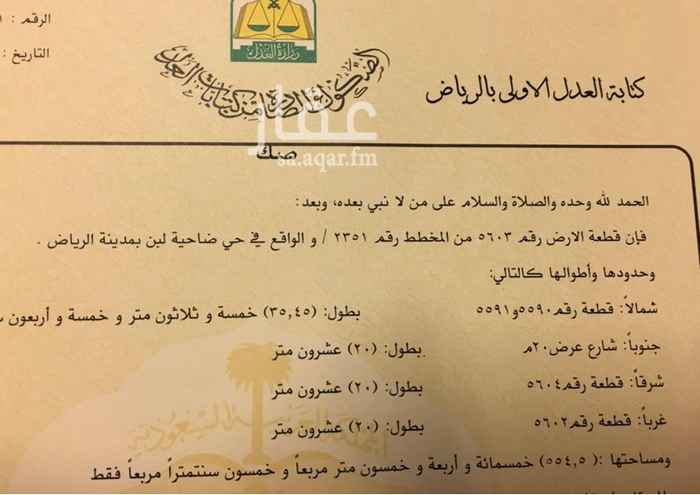 الرقم :
التاريخ :
وزارة العدل
كتابة العدل الاولى بالرياض
عقار
sa.aqar.fm
صك
الحمد لله وحده والصلاة والسلام على من لا نبي بعده، وبعد:
فإن قطعة الارض رقم ٥٦٠٣ من المخطط رقم ٢٣٥١ / و الواقع في حي ضاحية لبن بمدينة الرياض .
وحدودها وأطوالها كالتالي:
شمالاً: قطعة رقم ٥٥٩٠و٥٥٩١ بطول: (٣٥,٤٥) خمسة و ثلاثون متر و خمسة و أربعون
جنوباً: شارع عرض ٢٠م بطول: (٢٠) عشرون متر
شرقاً: قطعة رقم ٥٦٠٤ بطول: (٢٠) عشرون متر
غرباً: قطعة رقم ٥٦٠٢ بطول: (٢٠) عشرون متر
ومساحتها :( ٥٥٤,٥) خمسمائة و أربعة و خمسون متر مربعاً و خمسون سنتمتراً مربعاً فقط